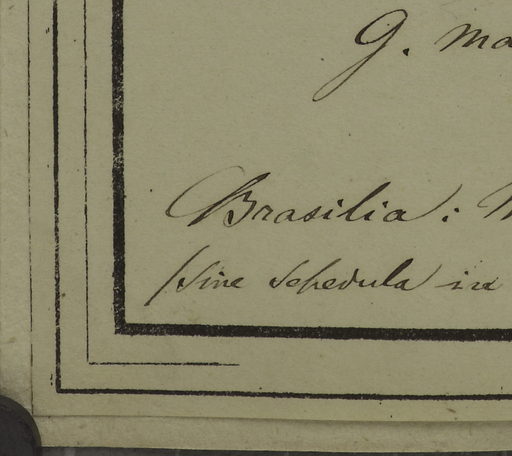 G. ma
Brasilia:
(sine schedula in